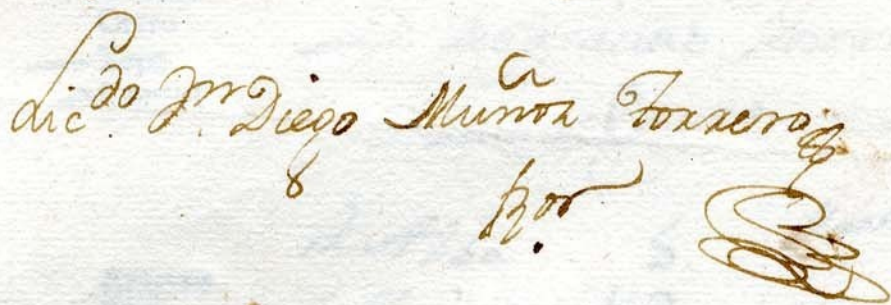 Lic.do Dn. Diego Muñoz Torrero
Ror